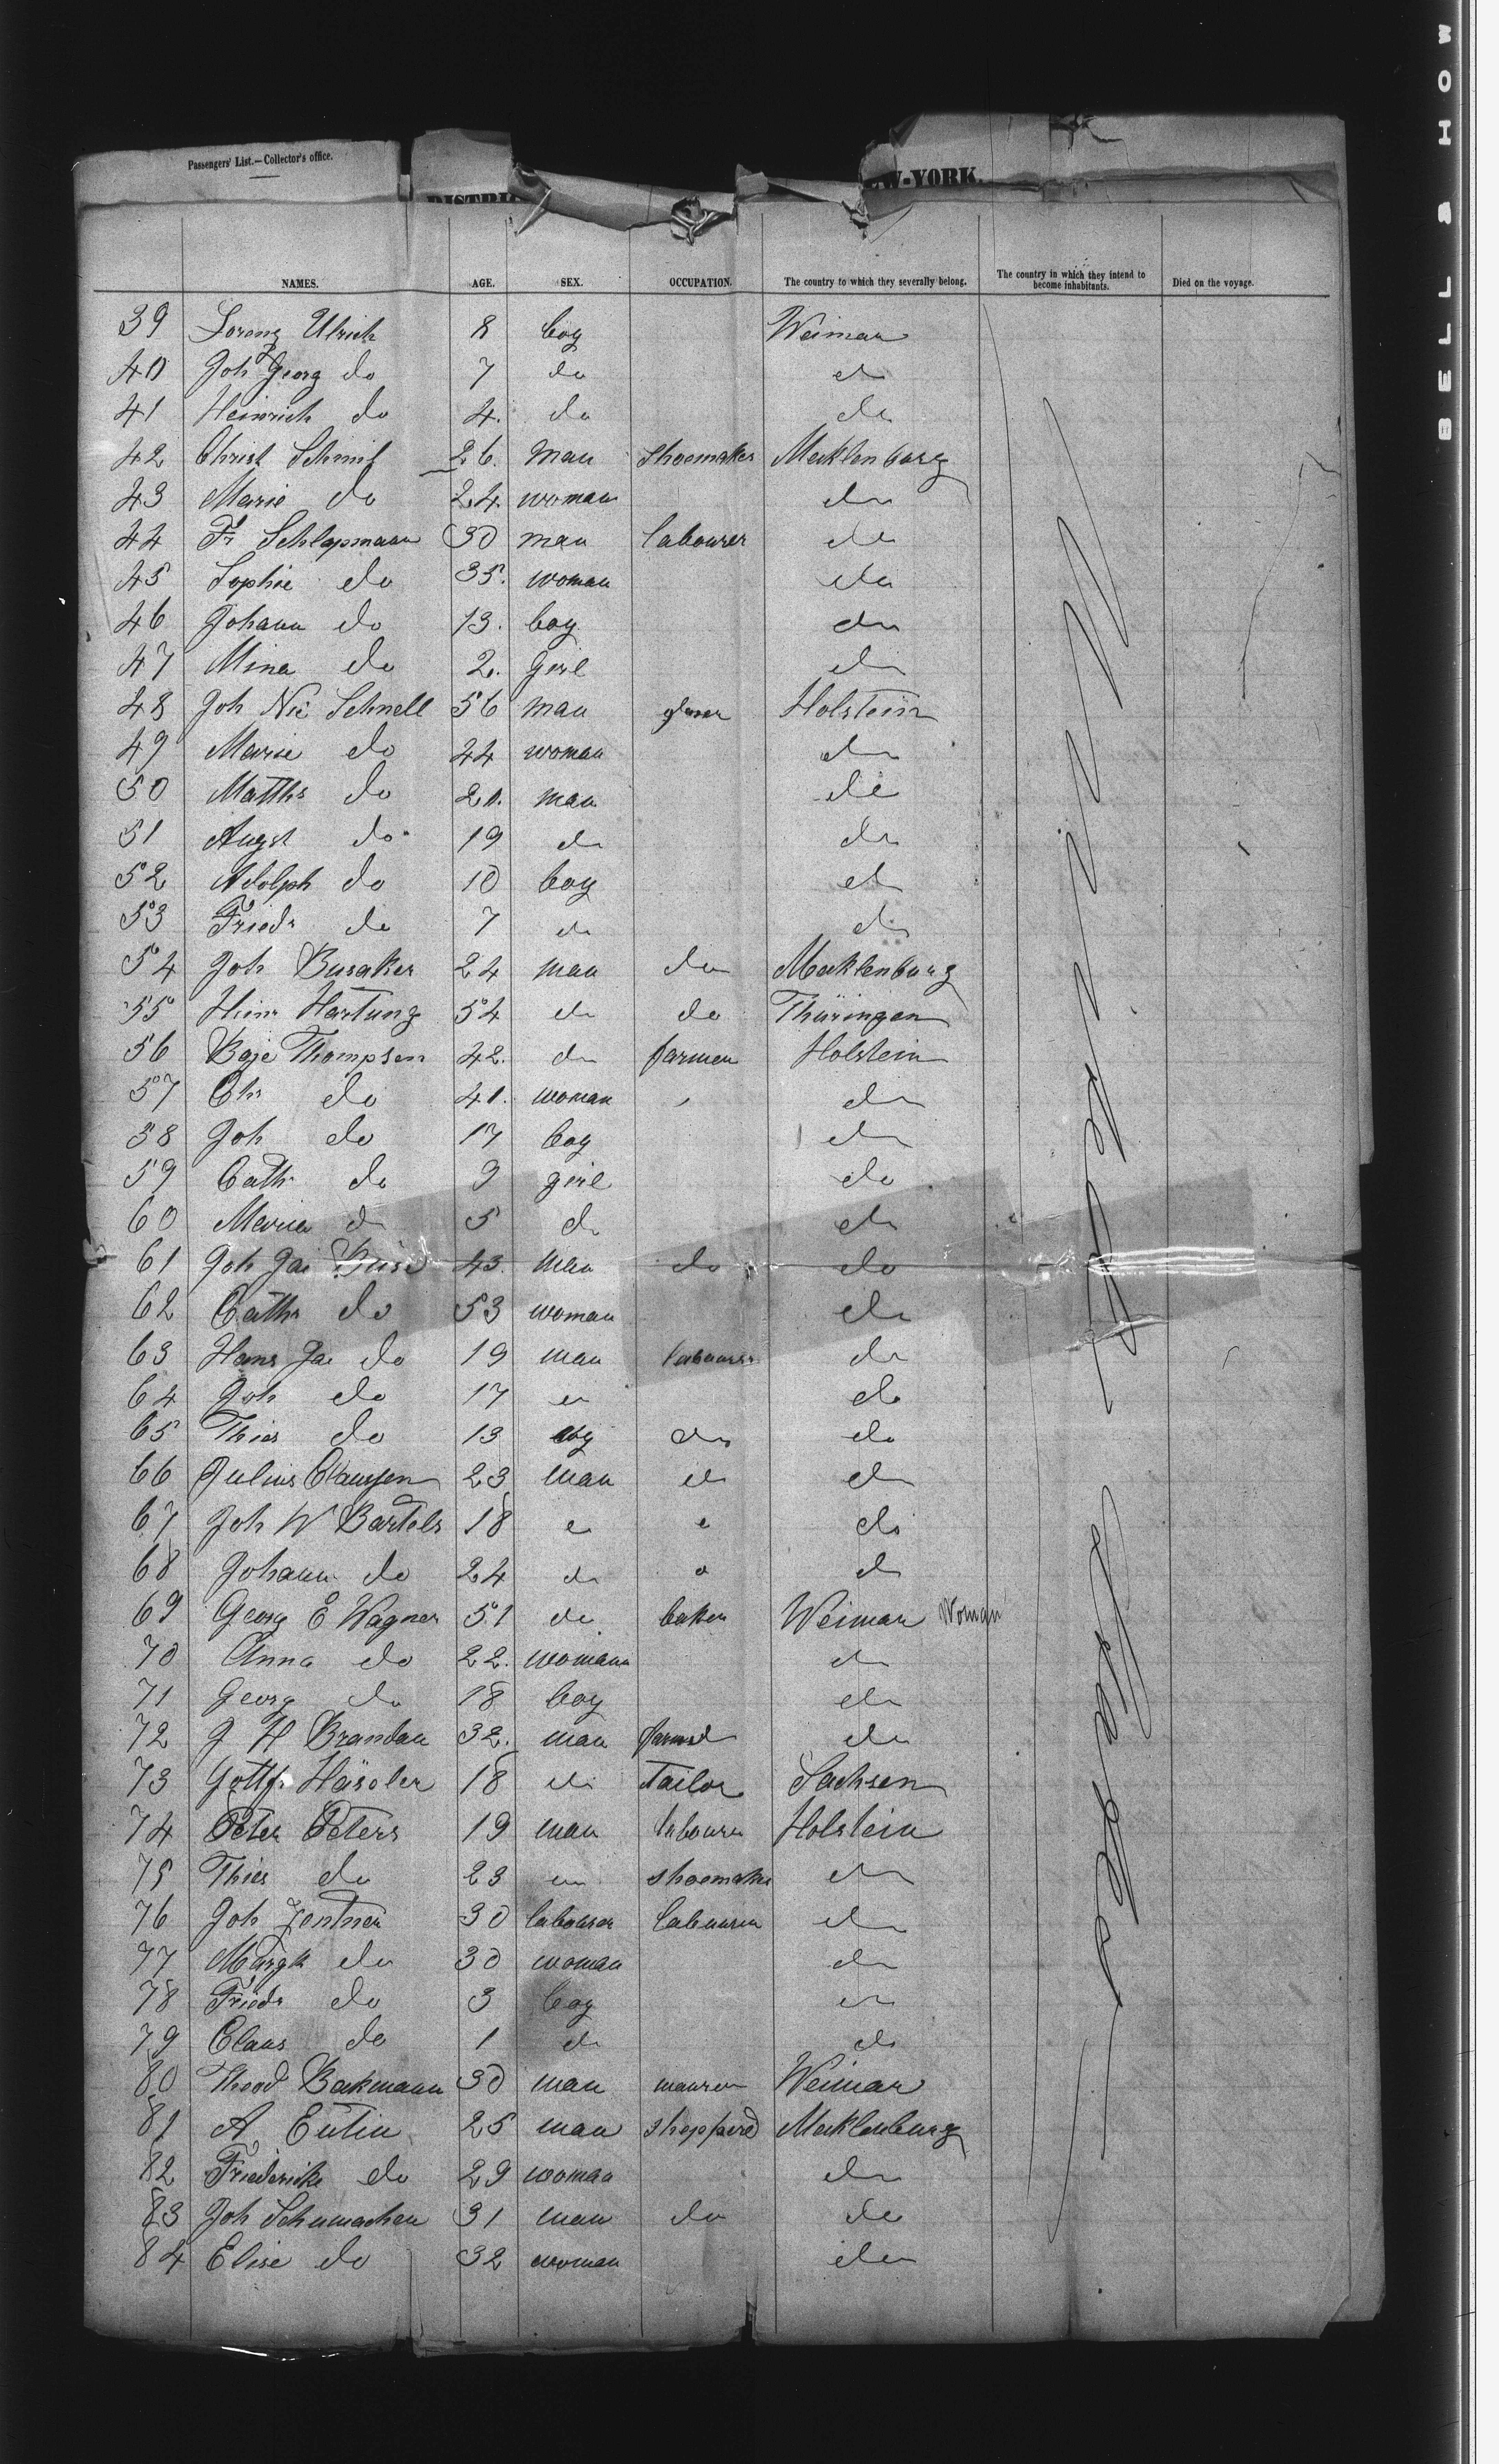 Passengers' List.—Collector's office.
DISTRIC EW-YORK.
NAMES. AGE. SEX. OCCUPATION. The country to which they severally belong. The country in which they intend to become inhabitants. Died on the voyage.
39 Lorenz Ulrich 8 boy Weimar
40 Joh Georg do 7 do do
41 Heinrich do 4. do do
42 Christ 26. man shoemaker Mecklenburg
43 Marie do 24. woman do
44 Fr Schlapmann 30 man labourer do
45 Sophie do 35. woman do
46 Johann do 13. boy do
47 Mina do 2. girl do
48 Joh Nic Schnell 56 man Holstein
49 Marie do 44 woman do
50 Matths do 20. man do
51 Augst do 19 do do
52 Adolph do 10 boy do
53 Friedr do 7 do do
54 Joh Busaker 24 man do Mecklenburg
55 Heinr Hartung 54 do do Thüringen
56 Boje Thompsen 42. do farmer Holstein
57 Chr do 41. woman do
58 Joh do 17 boy do
59 Cath do 9 girl do
60 Maria do 5 do do
61 Joh Jac 43. man do do
62 Cathr do 53 woman do
63 Hans Jac do 19 man labourer do
64 Joh do 17 do do
65 Thies do 13 boy do do
66 Julius Claussen 23 man do do
67 Joh W Bartels 18 do
68 Johann do 24 do do
69 Georg E Wagner 51 do. baker Weimar Woman
70 Anna do 22. womann do
71 Georg do 18 boy do
72 J H Brandau 32. man farmer do
73 Gottf. Häseler 18 do Tailor Sachsen
74 Peter Peters 19 man labourer Holstein
75 Thies do 23 do shoemaker do
76 Joh Zentner 30 labourer labourer do
77 Margh do 30 woman do
78 Friedr do 3 boy do
79 Claus do 1 do do
80 Theod Backmann 30 man maurer Weimar
81 A. Eutin 25 man shepperd Mecklenburg
82 Friedericke do 29 woman do
83 Joh Schumacher 31 man do do
84 Elise do 32 woman do
BELL & HOW